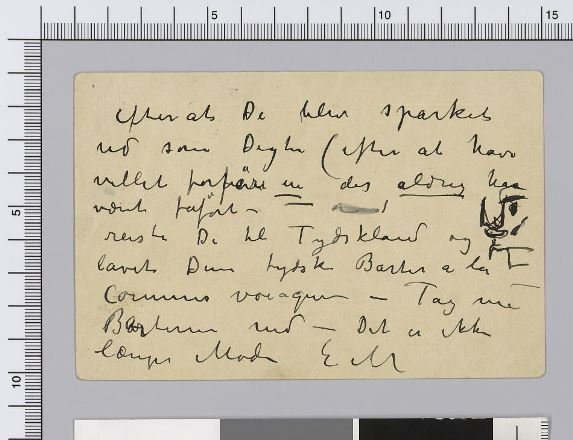 efter at De blev sparket
ud som Digter (efter at have
villet forføre en des aldrig har
været forført —
reiste De til Tydskland og
lavet Dem tydsk Barter a la
Commis voiageur — Tag nu
Barterne med — Det er ikke
længer Mode E M
5
10
15
5
10